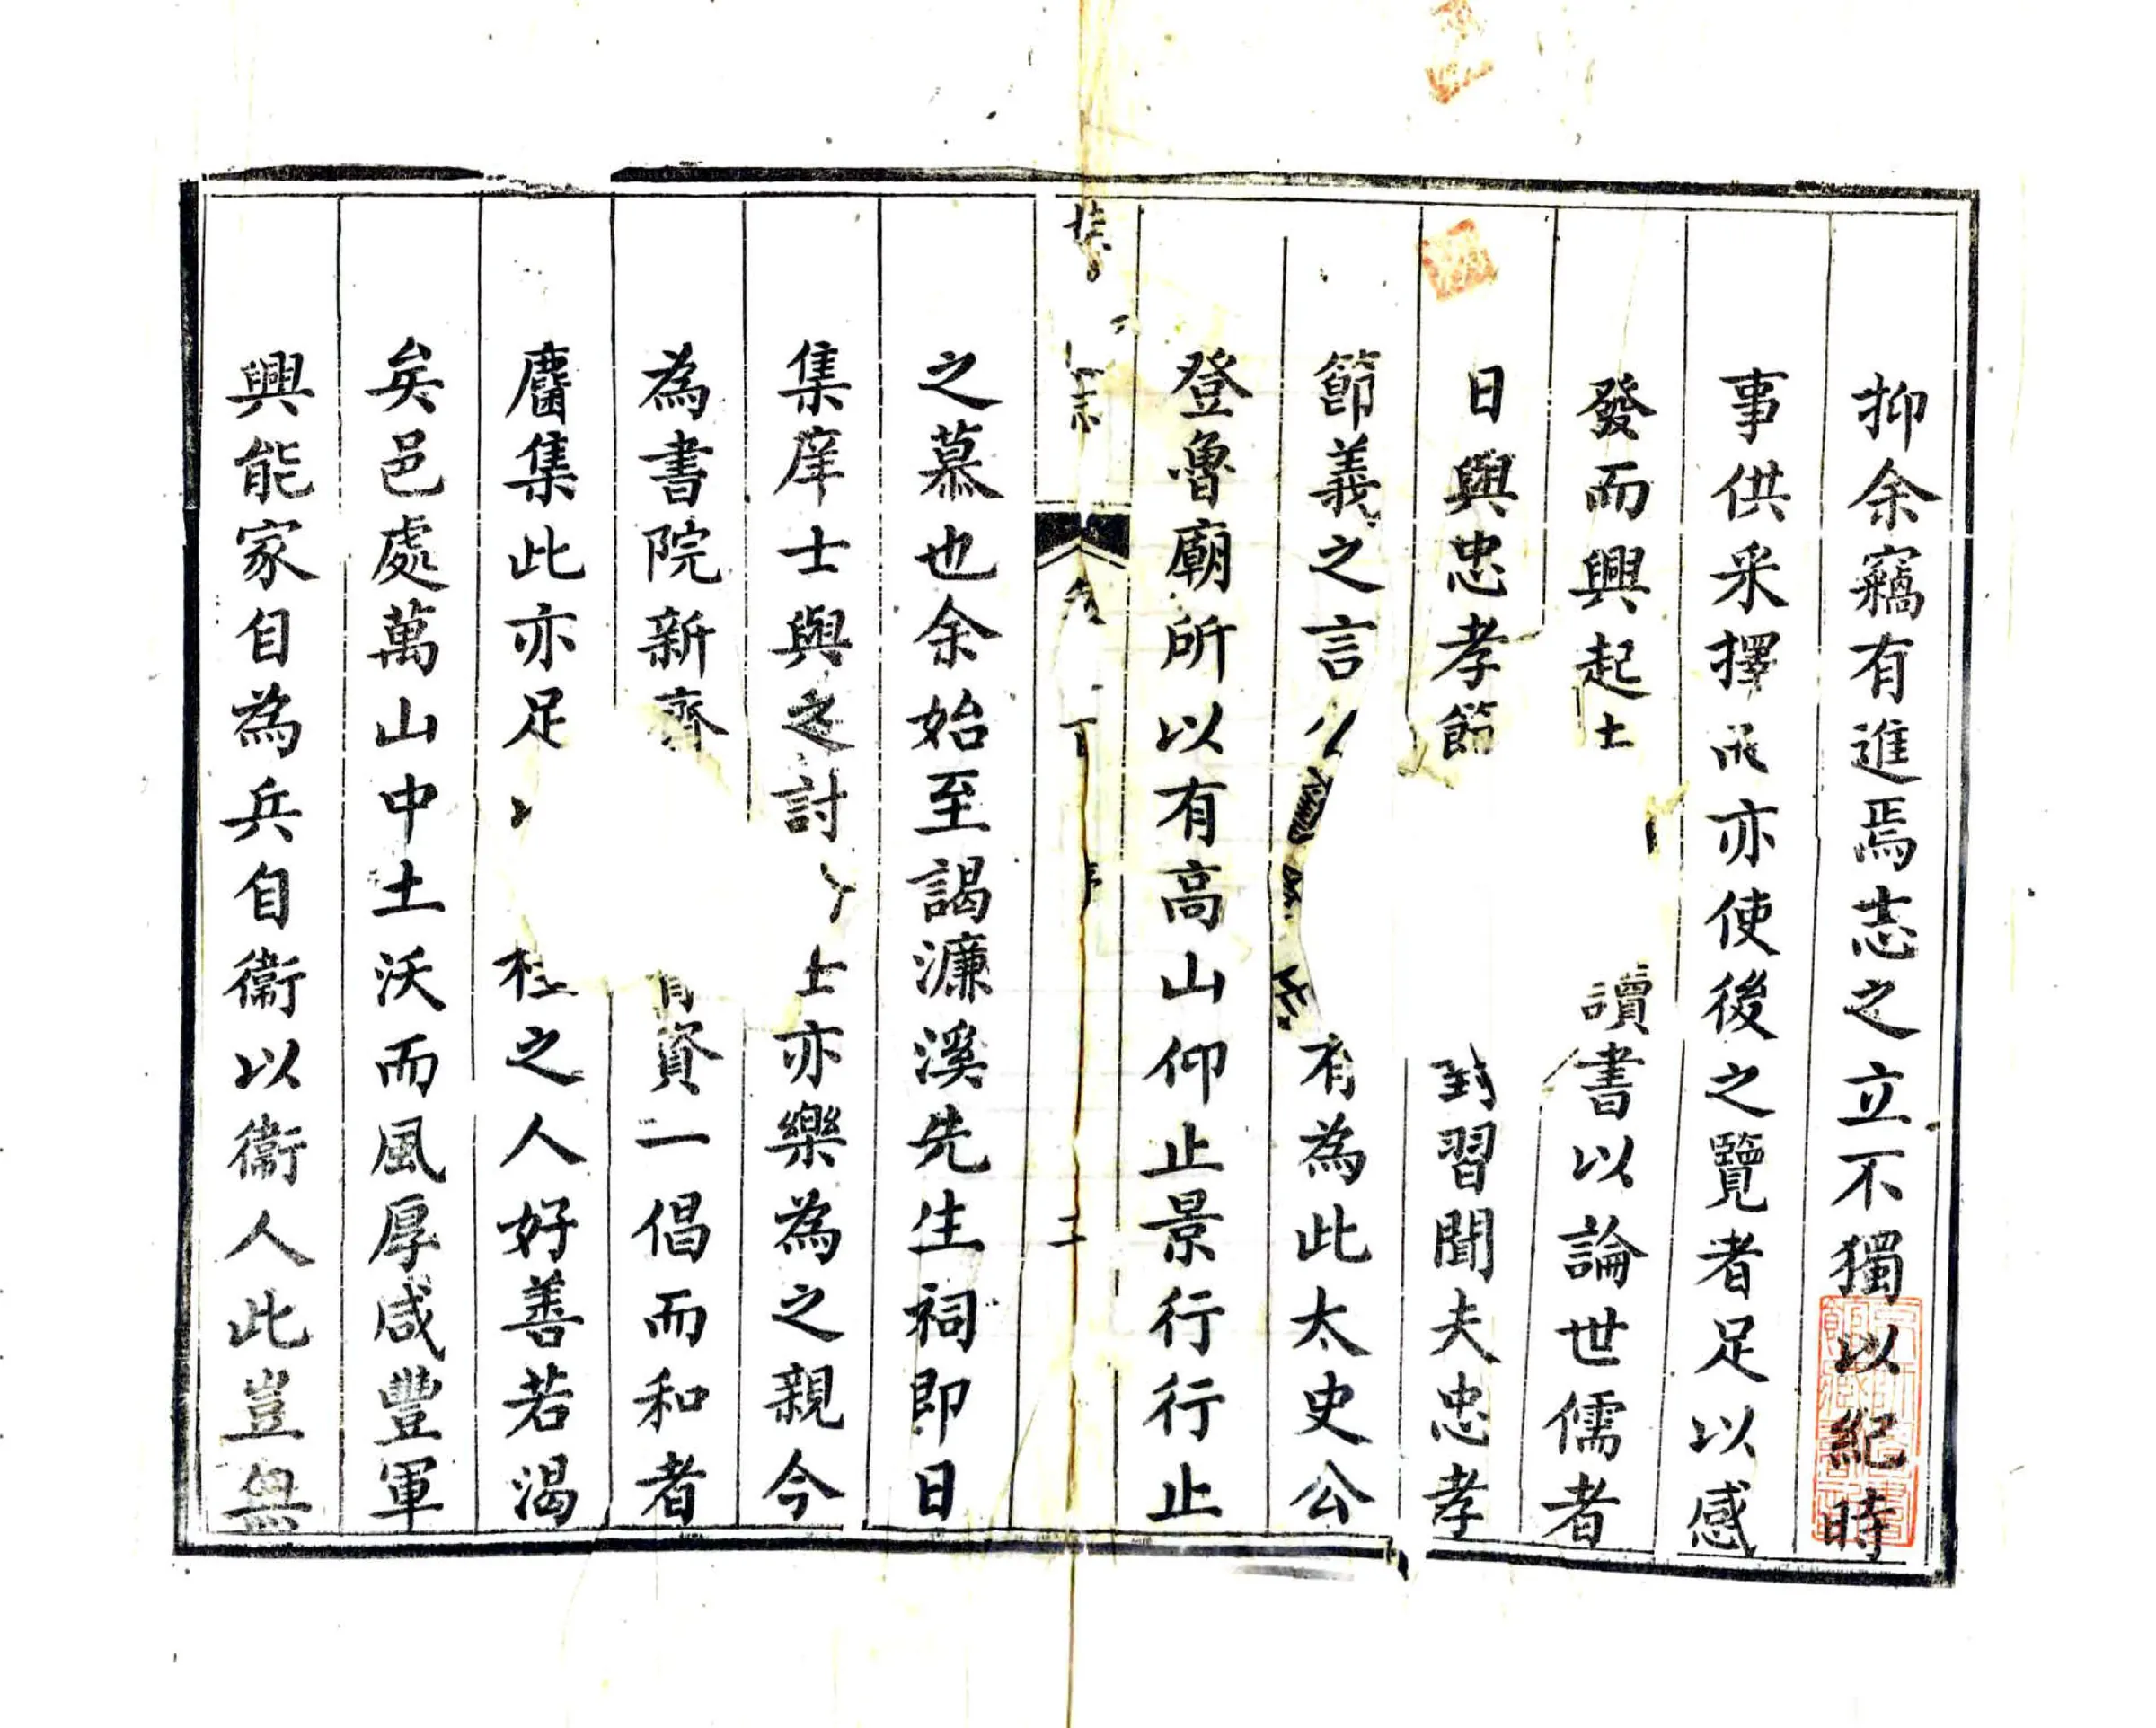 抑余竊有進焉志之立不獨以紀時
事供采擇亦使後之覽者足以感
發而興起士讀書以論世儒者
日與忠孝節習聞夫忠孝
節義之言有為此太史公
登魯廟所以有高山仰止景行行止
之慕也余始至謁濂溪先生祠即日
集庠士與之討士亦樂為之親今
為書院新齊資一倡而和者
麕集此亦足桂之人好善若渴
矣邑處萬山中土沃而風厚咸豐軍
興能家自為兵自衞以衞人此豈無